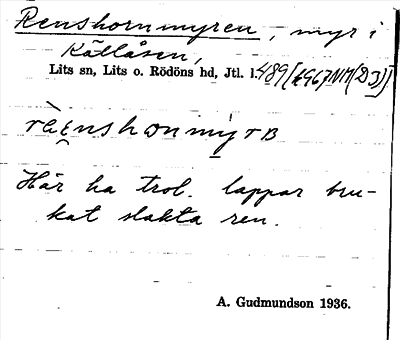 Renshornmyren, myr i
Källåsen,
Lits sn, Lits o. Rödöns hd, Jtl. l. 489 [1967 NM (D3)]
Här ha trol. lappar bru-
kat slakta ren.
A. Gudmundson 1936.